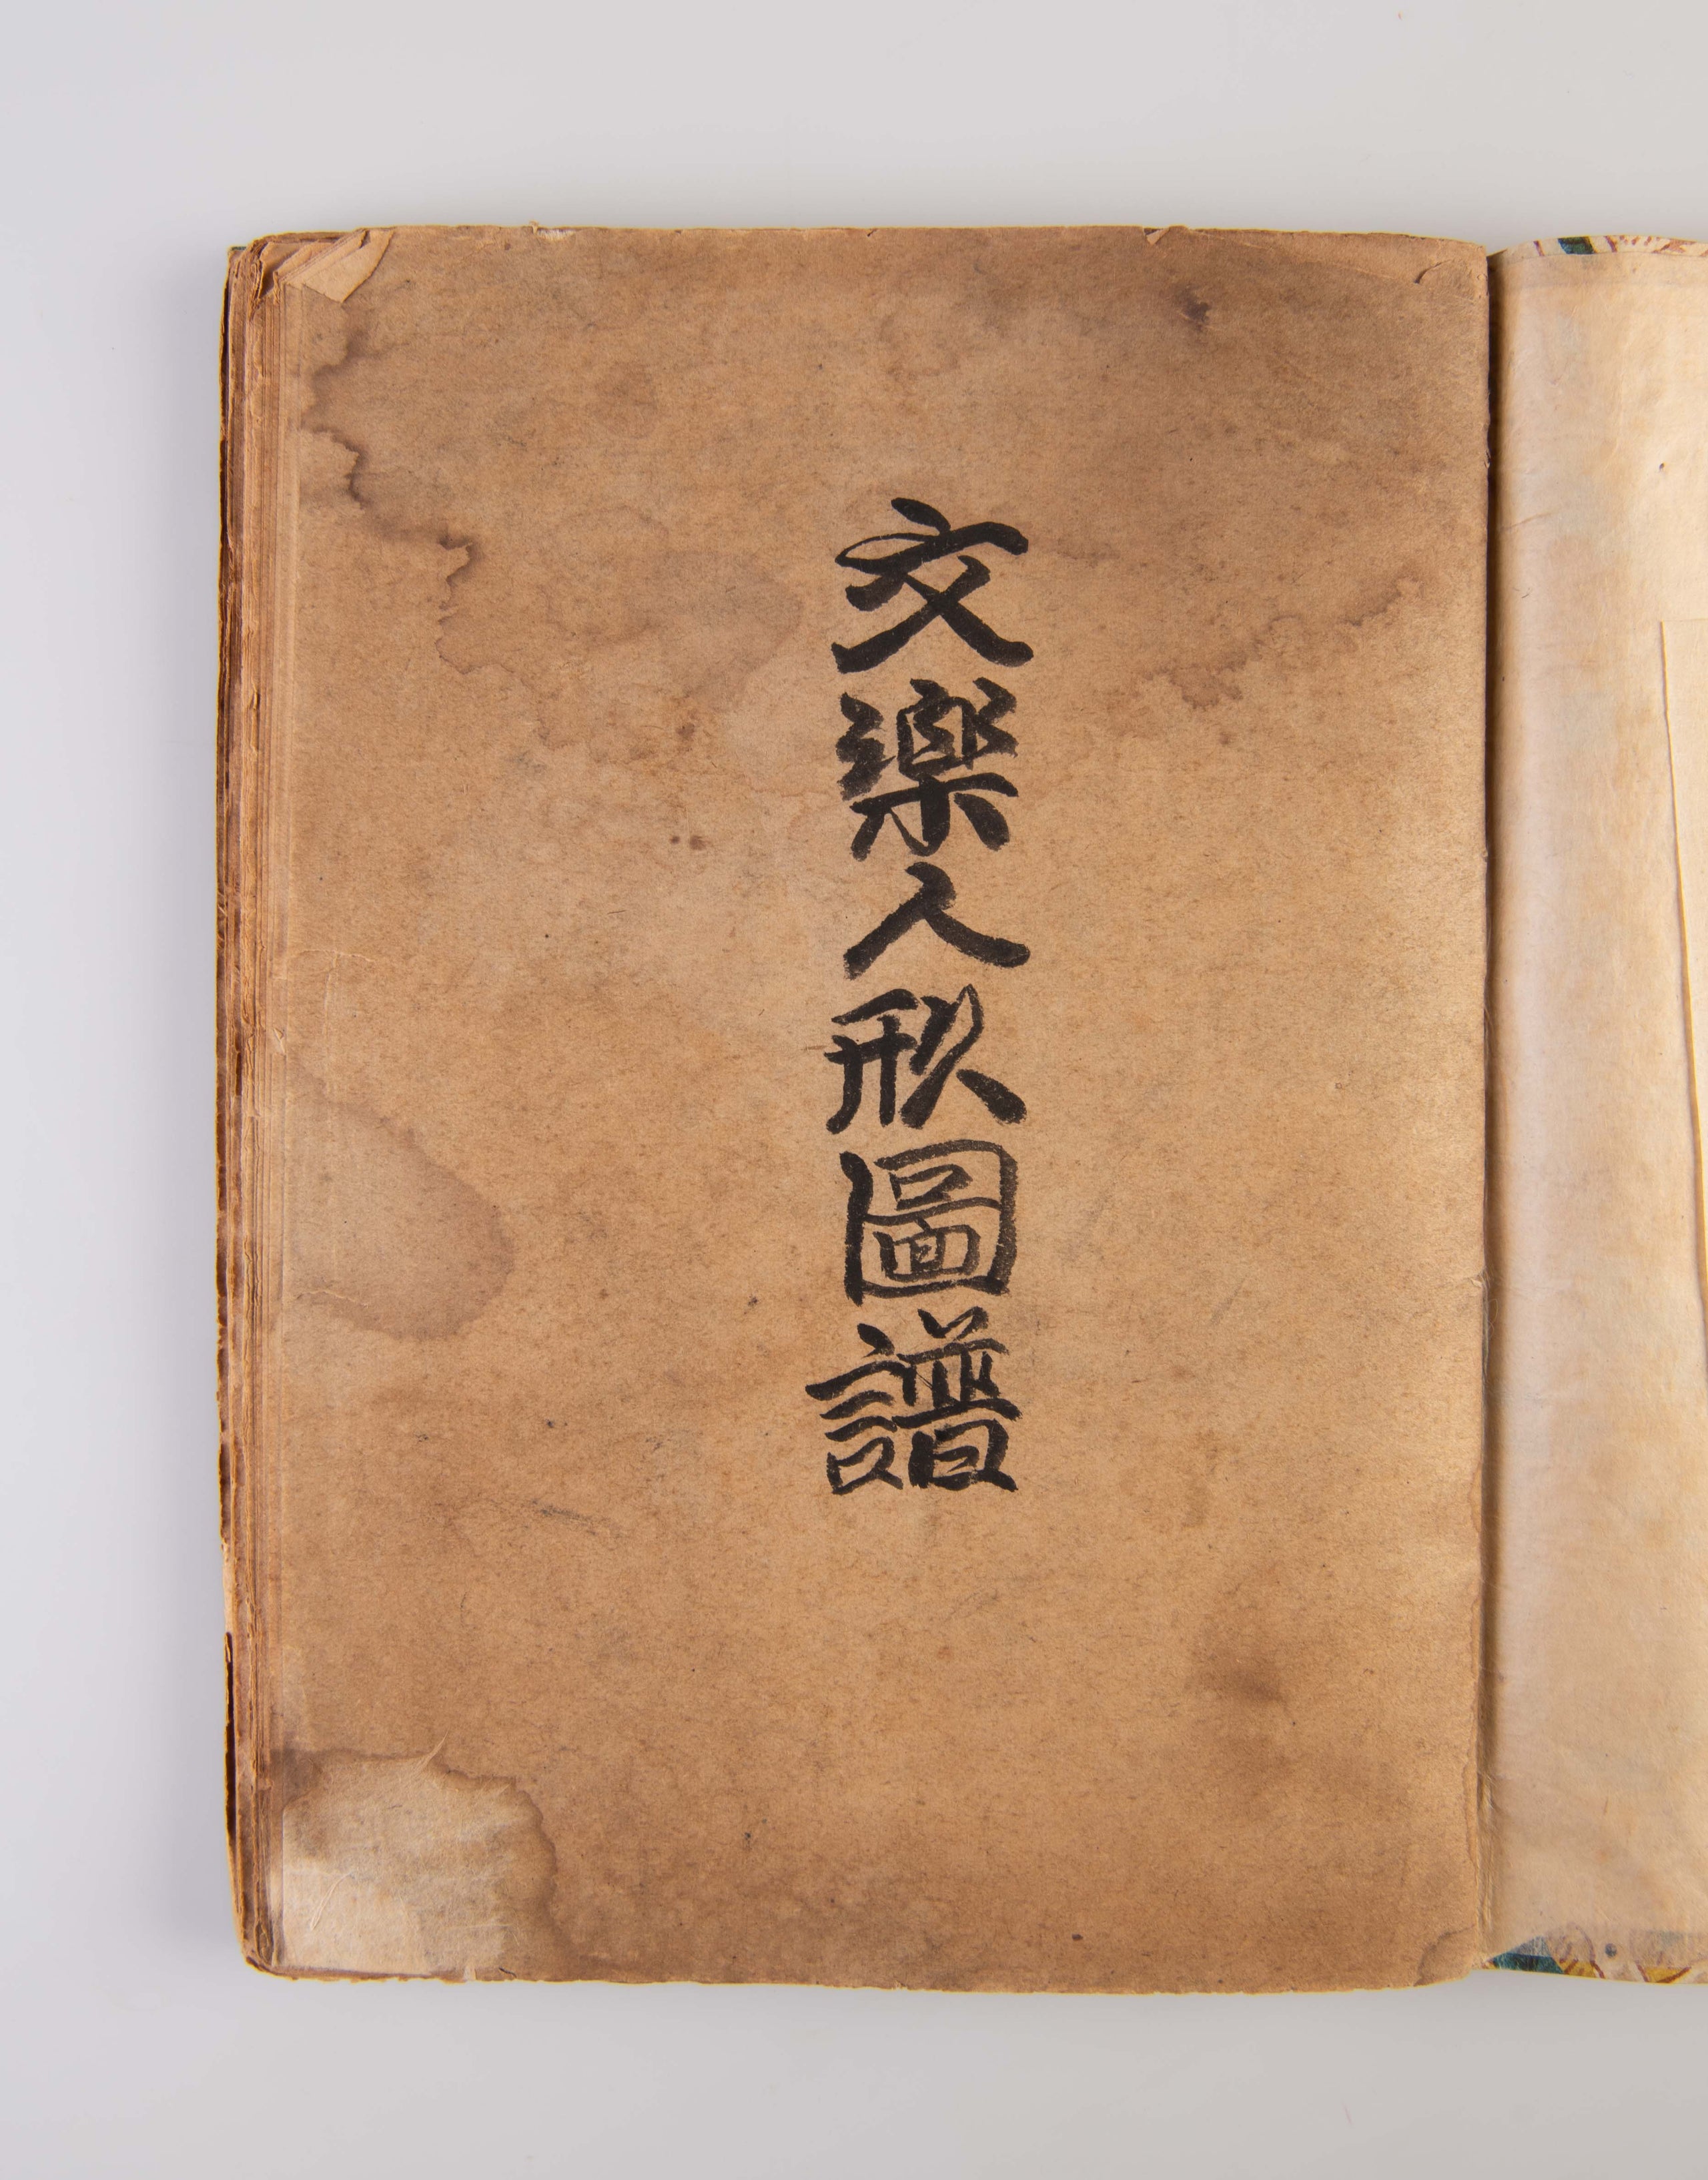 文樂人形圖譜